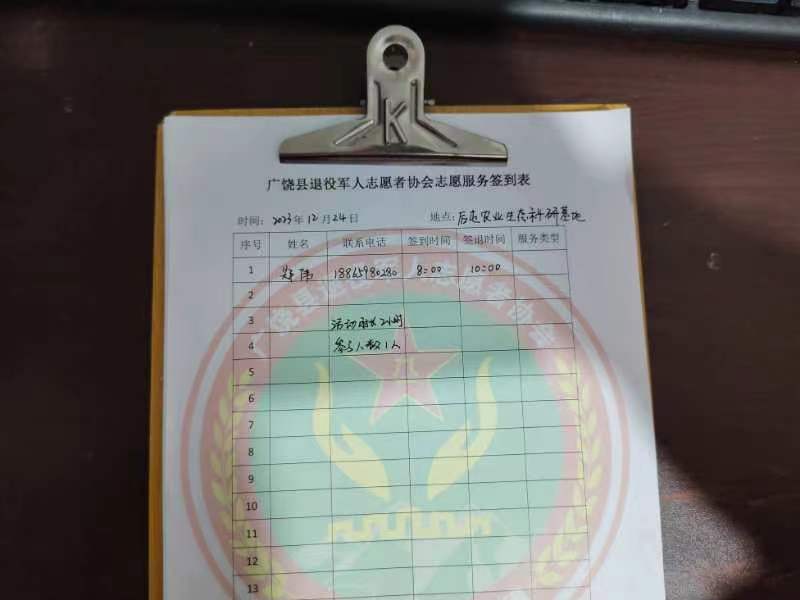 广饶县退役军人志愿者协会志愿服务签到表
时间：2023年12月24日 地点：后边农业生态科研基地
序号 姓名 联系电话 签到时间 签退时间 服务类型
1 郑伟 18865980280 8:00 10:00
2
3 活动时长2小时
4 参与人数1人
5
6
7
8
9
10
11
12
13
广饶县退役军人志愿者协会
八一
K